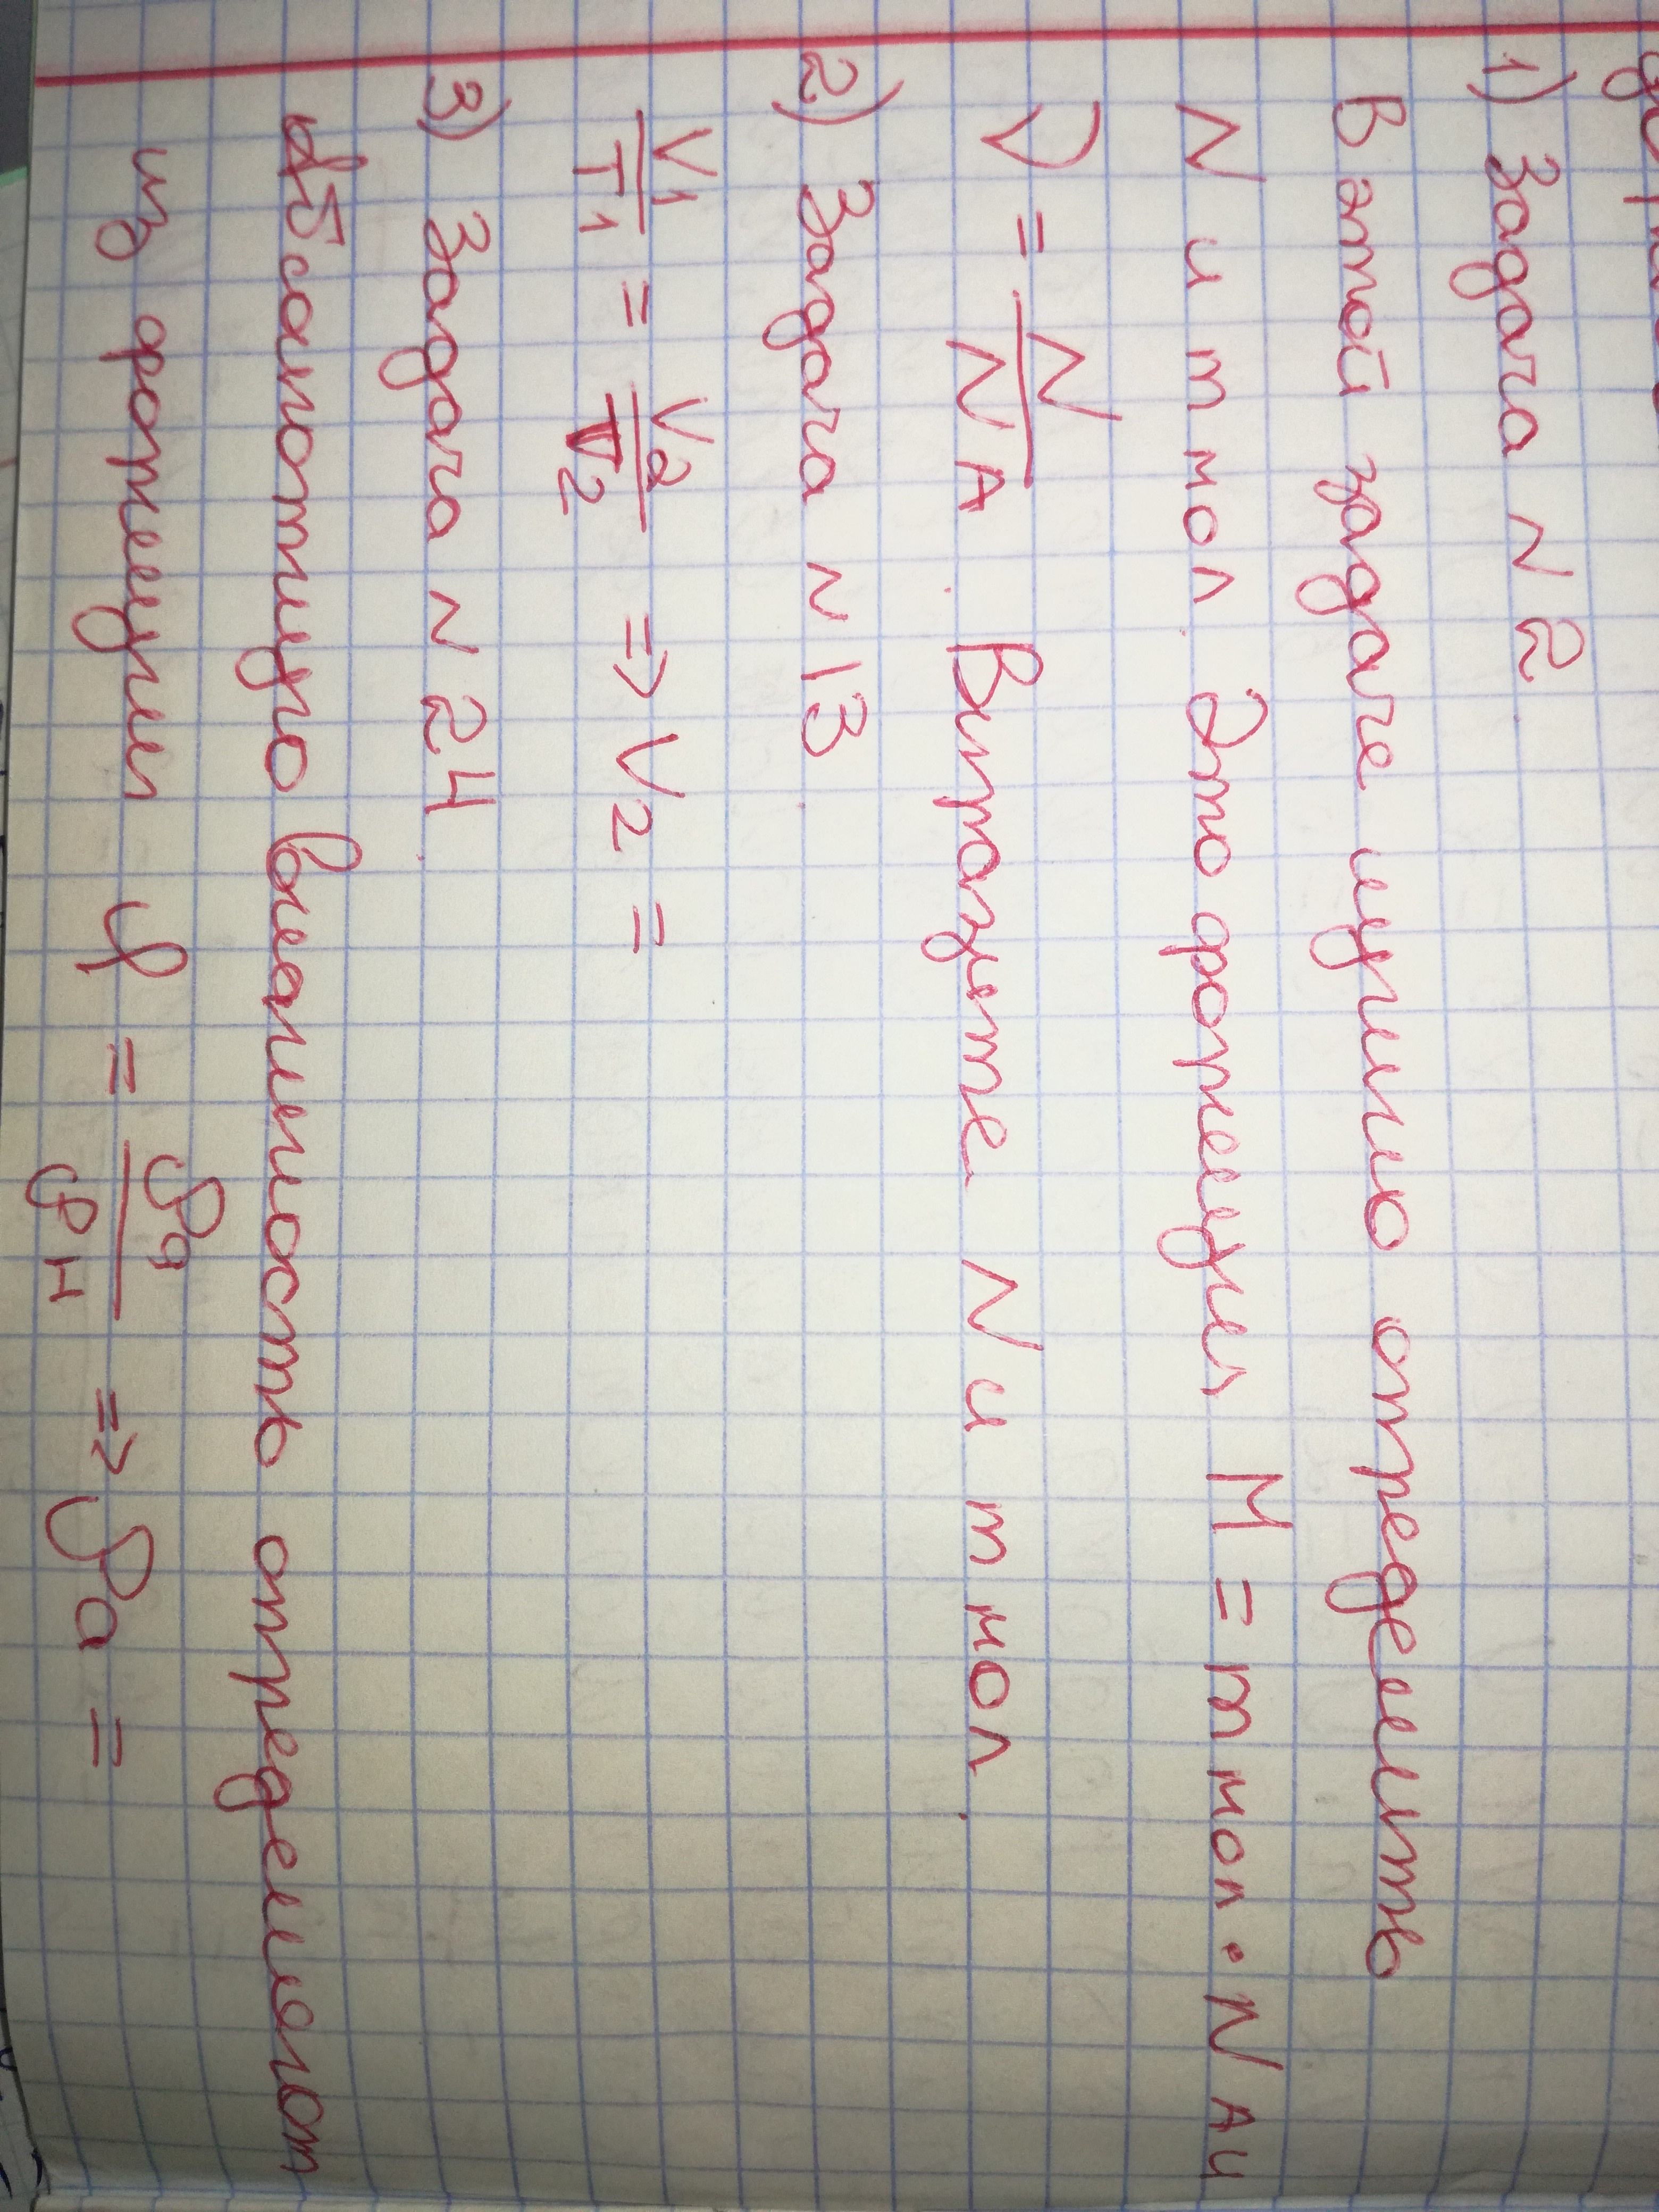 1) Задача N 2.
В этой задаче нужно определить
N и m мол. Это формула M = m мол · N A и
ν = N / N A. Выразите N и m мол.
2) Задача N 13.
V1 / T1 = V2 / T2 => V2 =
3) Задача N 24.
Абсолютную влажность определяют
из формулы φ = ρa / ρн => ρa =